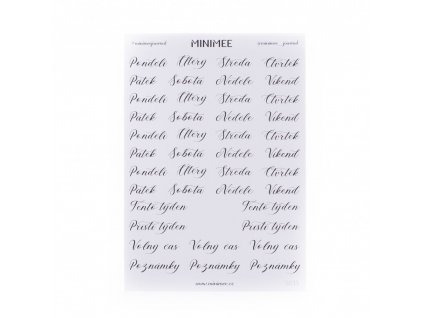 MINIMEE
Pondělí Úterý Středa Čtvrtek
Pátek Sobota Neděle Víkend
Pondělí Úterý Středa Čtvrtek
Pátek Sobota Neděle Víkend
Pondělí Úterý Středa Čtvrtek
Pátek Sobota Neděle Víkend
Pondělí Úterý Středa Čtvrtek
Pátek Sobota Neděle Víkend
Tento týden Tento týden
Příští týden Příští týden
Volný čas Volný čas Volný čas
Poznámky Poznámky Poznámky
www.minimee.cz